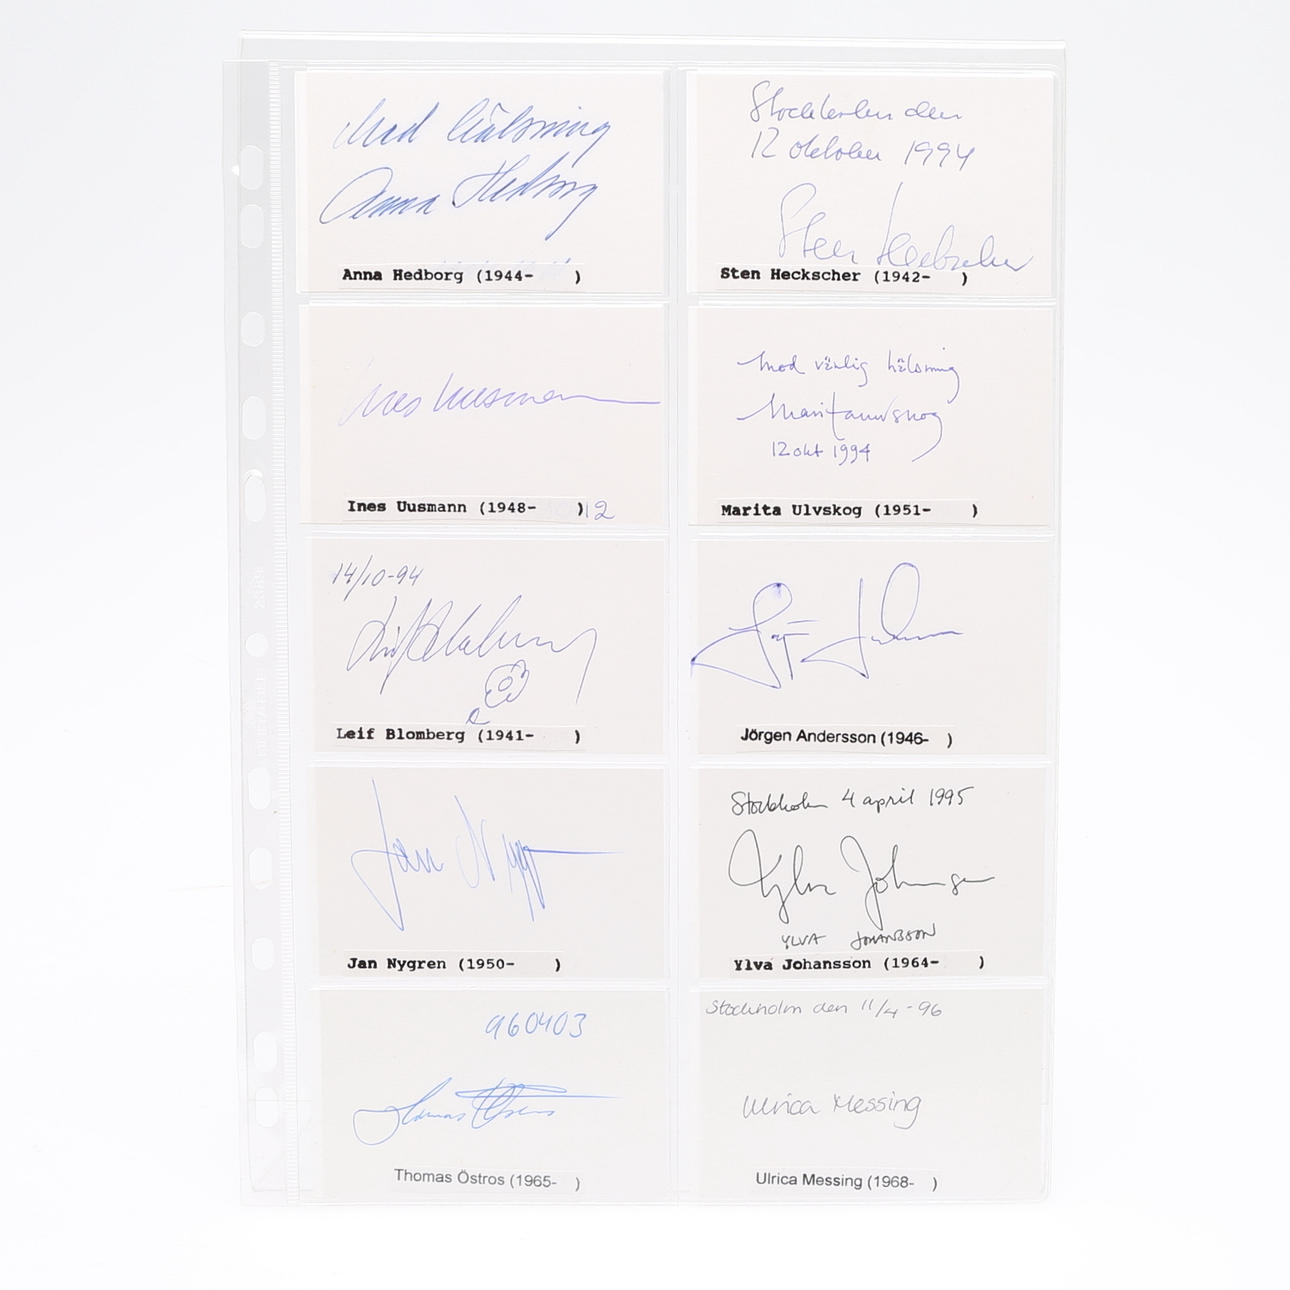 Med hälsning
Anna Hedborg
Anna Hedborg (1944-    )
Stockholm den
12 oktober 1994
Sten Heckscher
Sten Heckscher (1942-    )
Ines Uusmann
Ines Uusmann (1948-    )
12
Med vänlig hälsning
Marita Ulvskog
12 okt 1994
Marita Ulvskog (1951-    )
14/10-94
Leif Blomberg
Leif Blomberg (1941-    )
Jörgen Andersson (1946-    )
Jan Nygren
Jan Nygren (1950-    )
Stockholm 4 april 1995
Ylva Johansson
YLVA JOHANSSON
Ylva Johansson (1964-    )
960403
Thomas Östros
Thomas Östros (1965-    )
Stockholm den 11/4-96
Ulrica Messing
Ulrica Messing (1968-    )